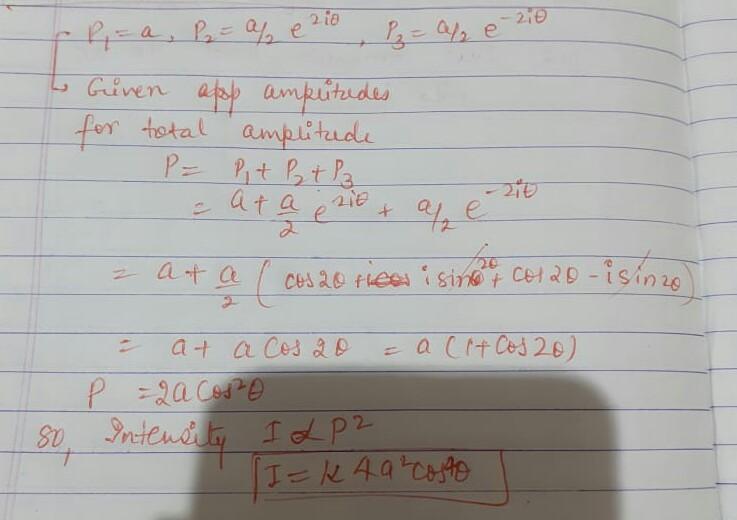 P₁ = a, P₂ = a/2 e^{2iθ}, P₃ = a/2 e^{-2iθ}
Given amplitudes
for total amplitude
P = P₁ + P₂ + P₃
= a + a/2 e^{2iθ} + a/2 e^{-2iθ}
= a + a/2 ( cos2θ + i sin2θ + cos2θ - i sin2θ)
= a + a Cos 2θ = a (1 + Cos2θ)
P = 2a Cos²θ
So, Intensity I ∝ P²
I = K 4a² cos⁴θ